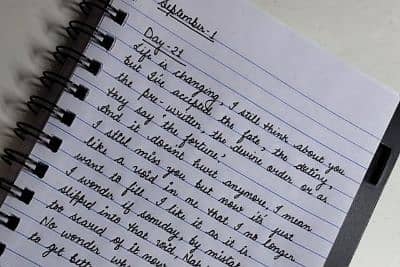 September-1
Day-21
Life is changing, I still think about you
but I've accepted the fate, the destiny,
the pre-written, the divine order or as
they say 'the fortune.'
And it doesn't hurt anymore, I mean
I still miss you but now it's just
like a void in me that I no longer
want to fill. I like it as it is.
I wonder if someday, by mistake
slipped into that void, Nah
too scared of it now
No wonder, wh
to get bett